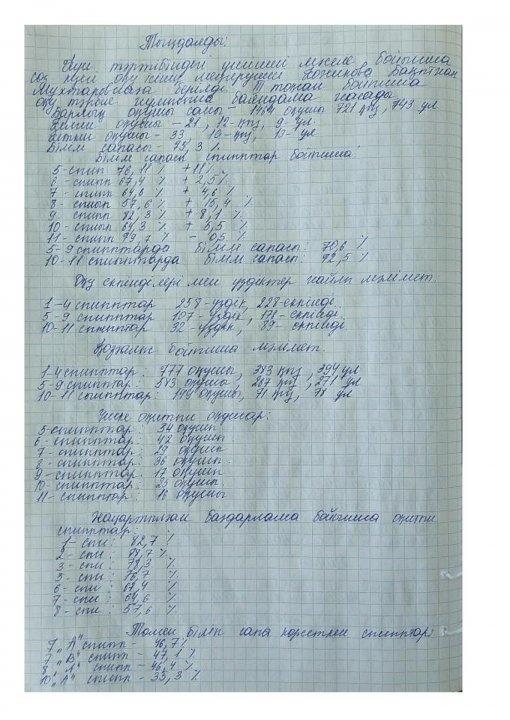 Тыңдалды:
Күн тәртібіндегі үшінші мәселе бойынша
сөз кезегі оқу ісінің меңгерушісі Бақытжан
Мұхтаровнаға берілді. Ш тоқсан бойынша
оқу түрлі баяндама жасады.
Барлық оқушы саны - 1464 оқушы 721 қыз, 743 ұл
Келген оқушы - 21, 12-қыз, 9-ұл
Кеткен оқушы - 33, 16-қыз, ұл
Білім сапасы - 73,3 %
Білім сапасы сыныптар бойынша:
5-сынып 76,11 % +11%
6-сынып 67,4 % + 2,5 %
7-сынып 64,6 % + 4,6 %
8-сынып 57,6 % + 15,4 %
9-сынып 82,3 % + 8,1 %
10-сынып 64,3 % + 5,5 %
11-сынып 99,7 % - 0,5 %
5-9 сыныптарда білім сапасы: 70,6 %
10-11 сыныптарда білім сапасы: 92,5 %
Оқу екпінділері мен үздіктер жайлы мәлімет.
1-4 сыныптар 258-үздік, 228-екпінді.
5-9 сыныптар 107-үздік, 178-екпінді.
10-11 сыныптар 32-үздік, 89-екпінді.
Қозғалыс бойынша мәлімет.
1-4 сыныптар: 777 оқушы, 383 қыз, 394 ұл
5-9 сыныптар: 543 оқушы, 267 қыз, 271 ұл
10-11 сыныптар: 144 оқушы, 71 қыз, 78 ұл
Үнсе оқитын оқушылар:
5-сыныптар: 34 оқушы
6-сыныптар: 42 оқушы
7-сыныптар: 29 оқушы
8-сыныптар: 36 оқушы
9-сыныптар: 17 оқушы
10-сыныптар: 23 оқушы
11-сыныптар: 16 оқушы
Жаңартылған бағдарлама бойынша оқитын
сыныптар:
1-сын: 82,7 %
2-сын: 78,7 %
3-сын: 73,3 %
5-сын: 76,7 %
6-сын: 67,4 %
7-сын: 64,6
8-сын: 57,6 %
Төмен білім сапа көрсеткен сыныптар:
7 „А" сынып - 46,7%
7 „В" сынып - 47,1 %
8 „А" сынып - 46,4 %
10 „А" сынып - 33,3 %